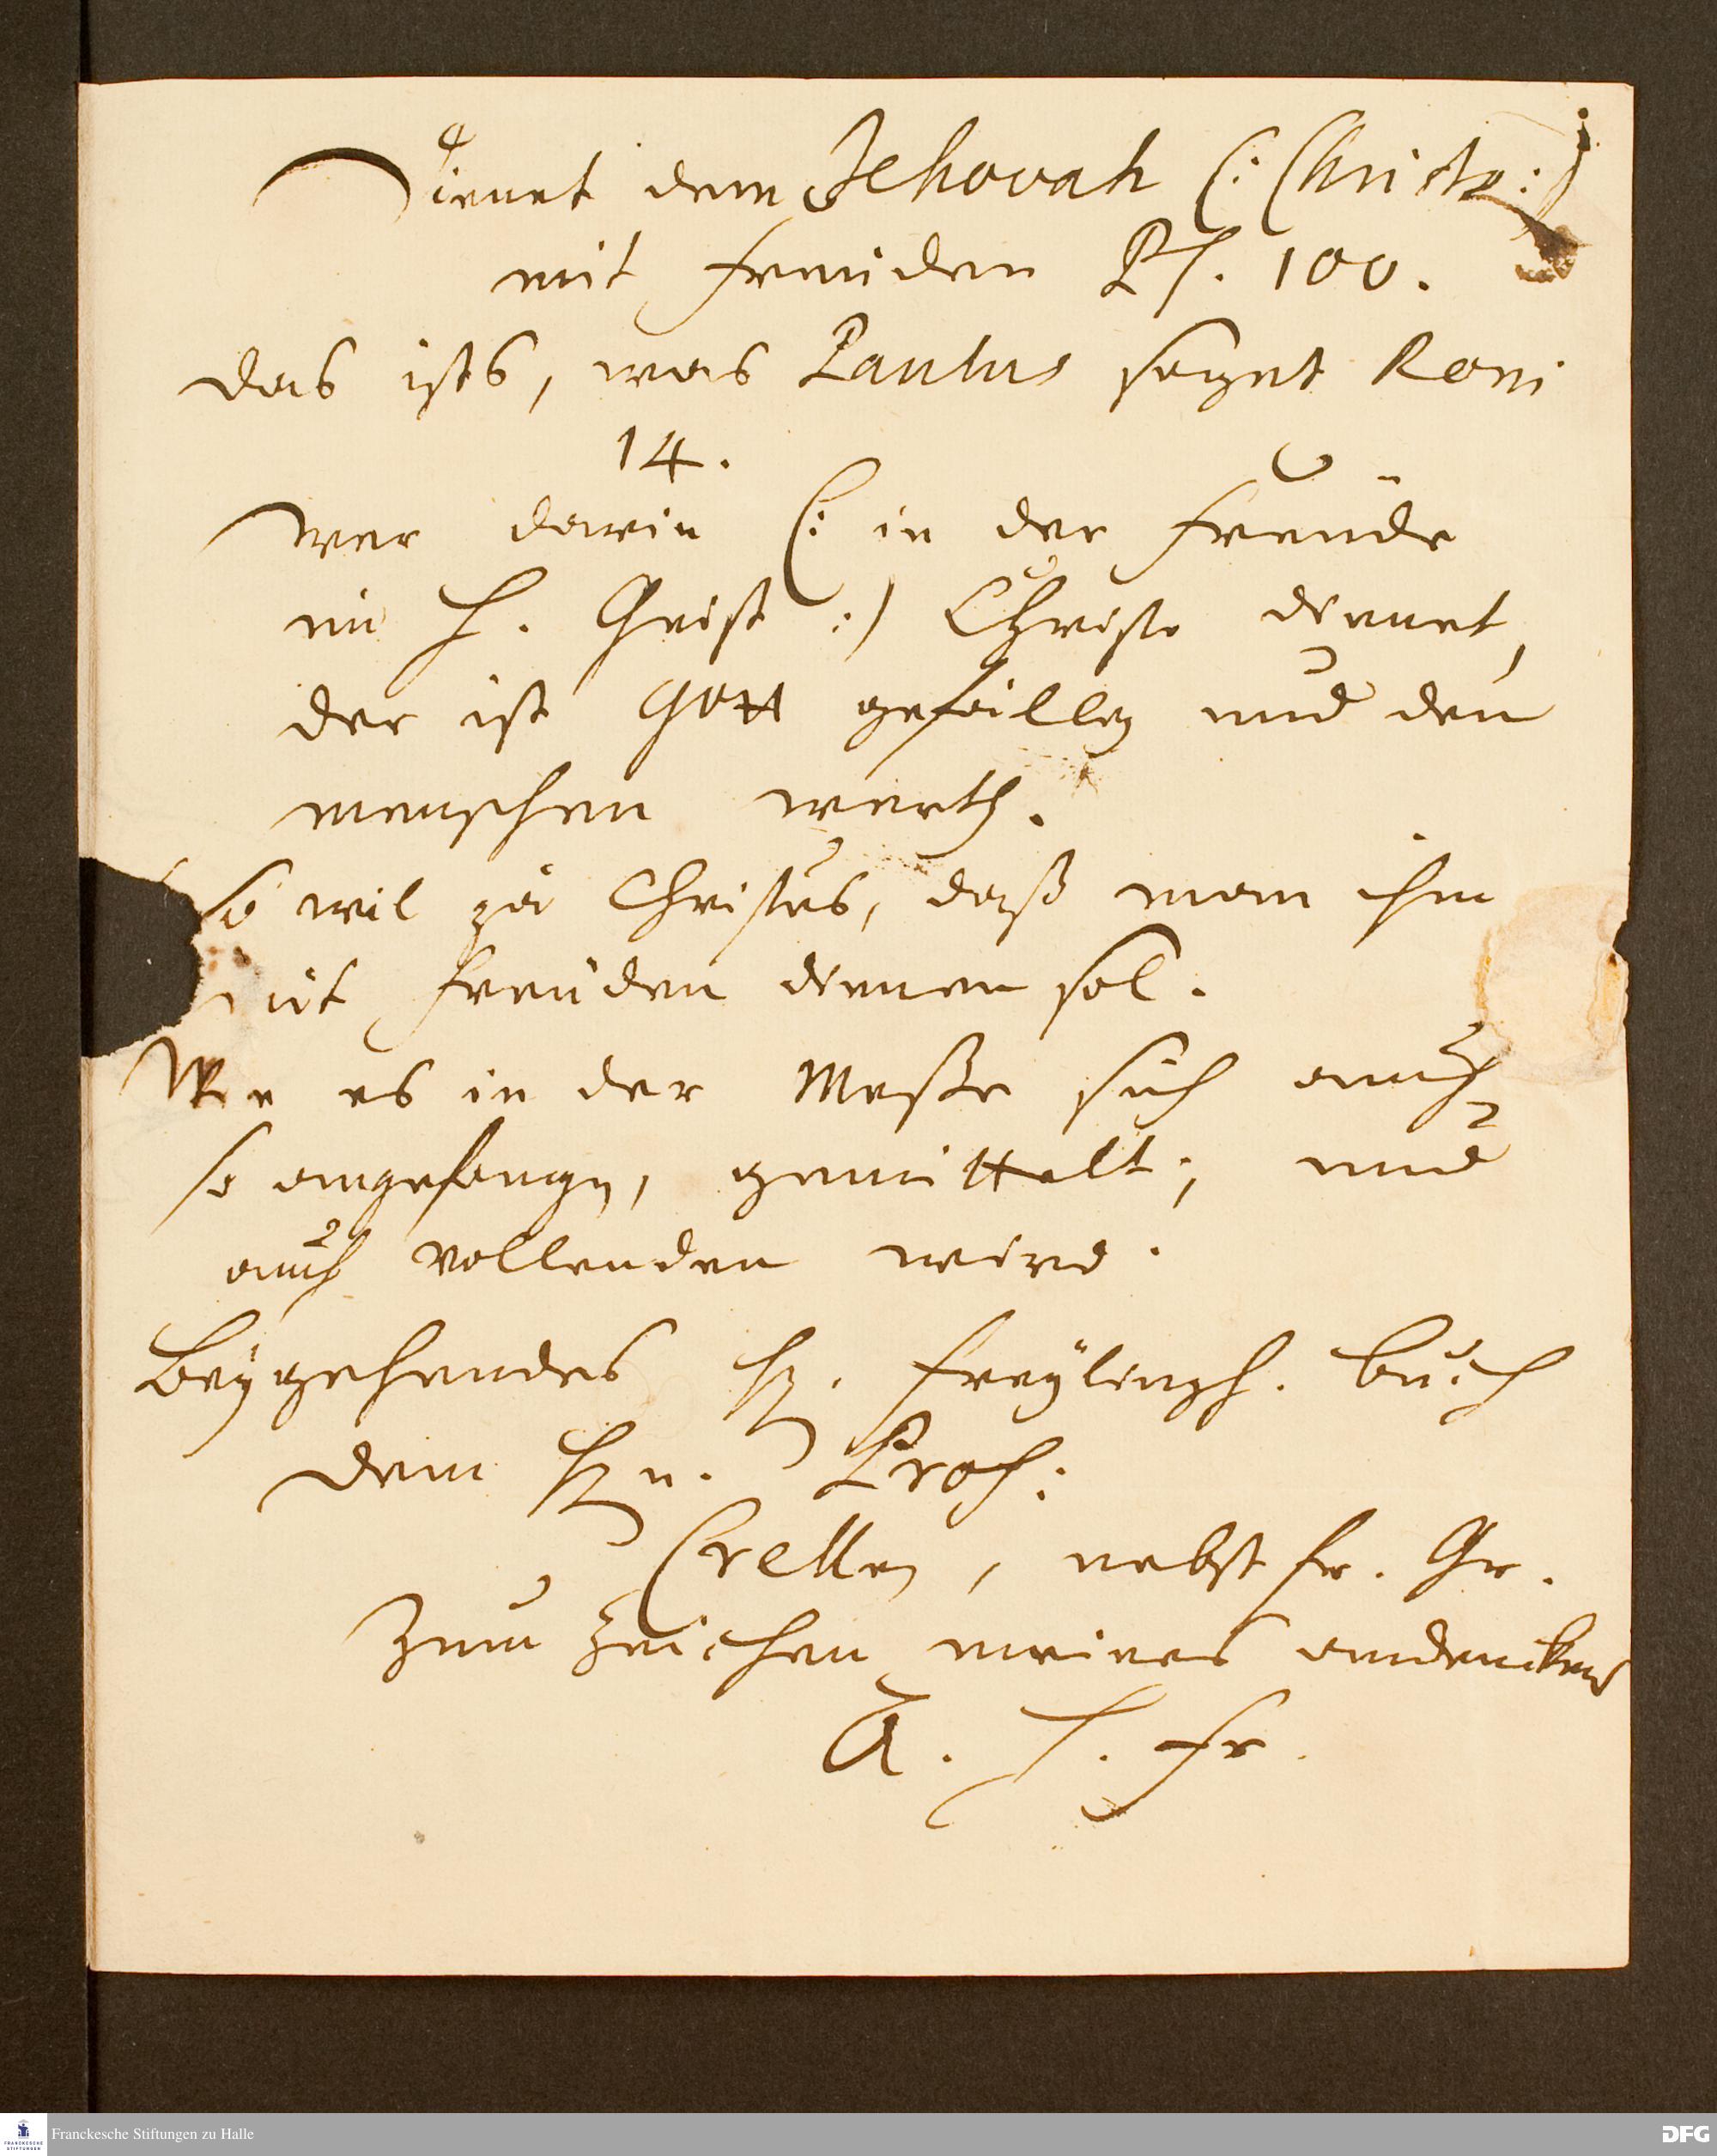 Dienet dem Jehovah (: Christo :)
mit freuden Ps. 100.
das ists, was Paulus saget Rom
14.
wer darin (: in der freude
im H. Geist :) Christo dienet,
der ist Gott gefällig und den
menschen werth.
So wil ja Christus, daß man ihm
mit freuden dienen sol.
Wie es in der Messe sich auch
so angefangen, gemittelt, und
auch vollenden wird.
Beygehendes H. Freylingh. buch
dem Hn. Prof:
Crellen, nebst fr. Gr.
Zum Zeichen meines andenckens
A. H. Fr.
Franckesche Stiftungen zu Halle
FRANCKESCHE
STIFTUNGEN
DFG